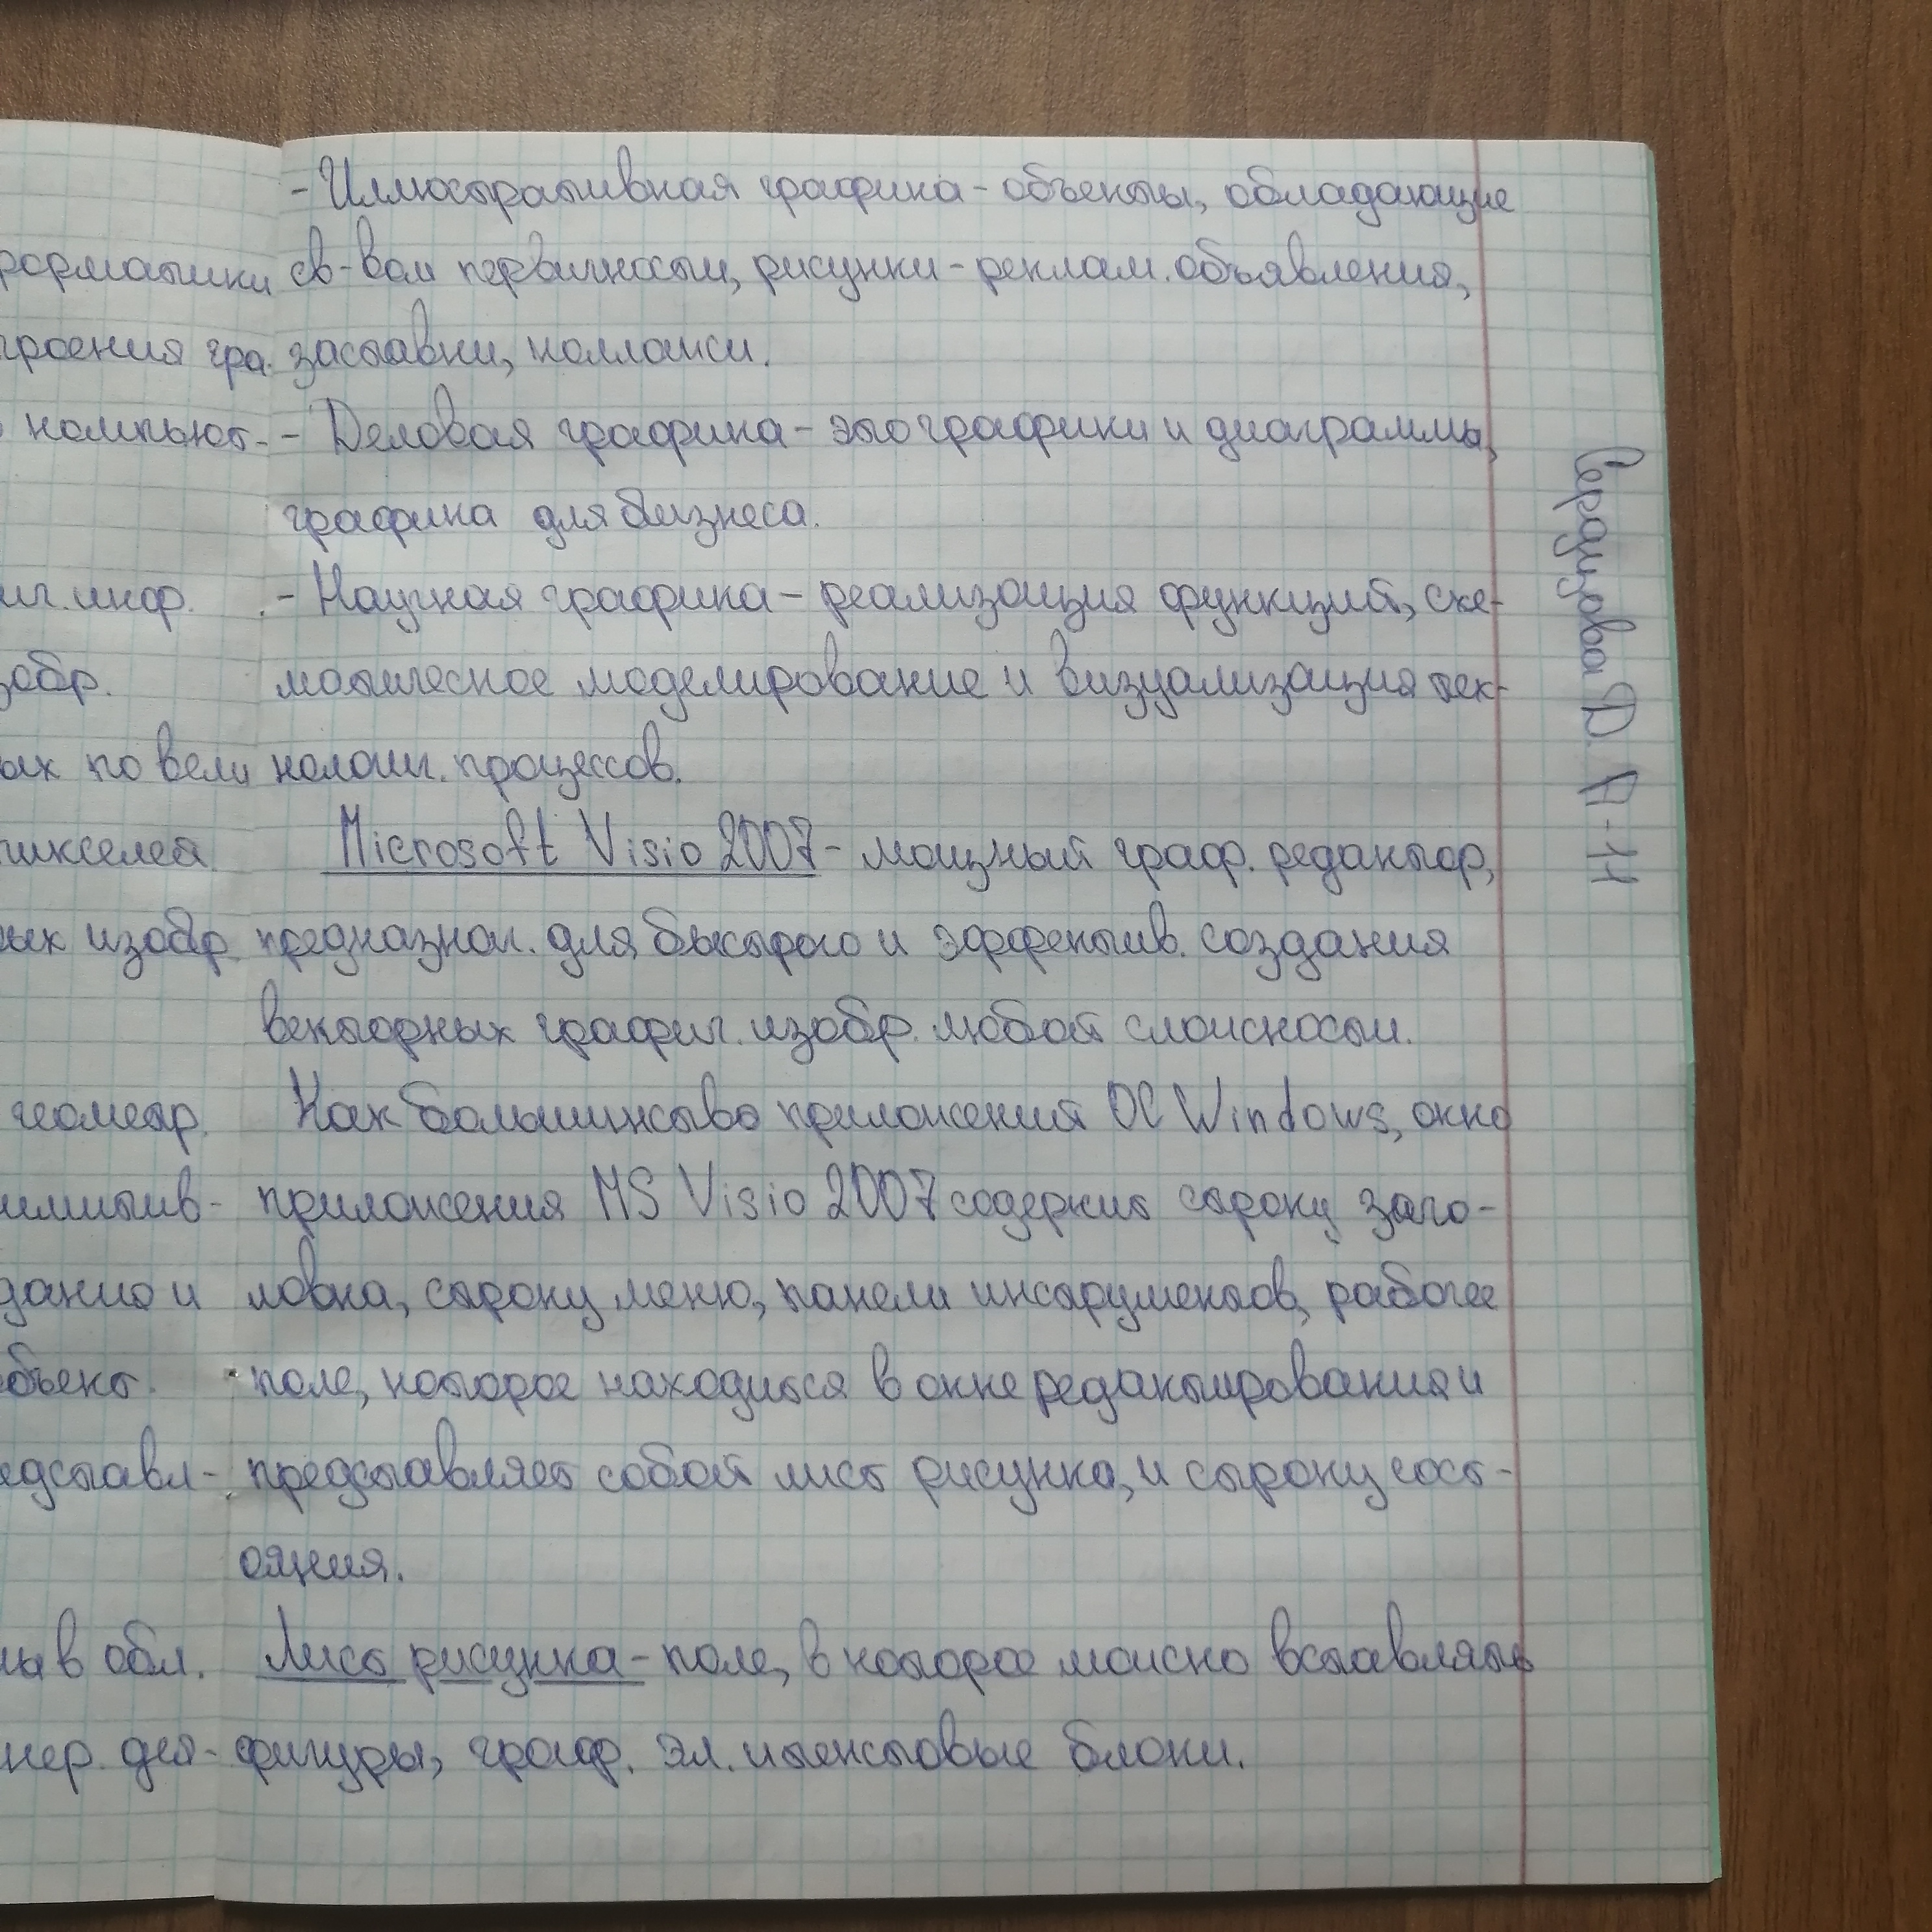 - Иллюстративная графика - объекты, обладающие
св-вом первичности, рисунки - реклам. объявления,
заставки, коллажи.
- Деловая графика - это графики и диаграммы,
графика для бизнеса.
- Научная графика - реализация функций, схе-
матическое моделирование и визуализация тех-
нологич. процессов.
Microsoft Visio 2007 - мощный граф. редактор,
предназнач. для быстрого и эффектив. создания
векторных графич. изобр. любой сложности.
Как большинство приложений ОС Windows, окно
приложения MS Visio 2007 содержит строку заго-
ловка, строку меню, панели инструментов, рабочее
поле, которое находится в окне редактирования и
представляет собой лист рисунка, и строку сост-
ояния.
Лист рисунка - поле, в которое можно вставлять
фигуры, граф. эл. и текстовые блоки.
форматики
троения гра.
компьют-
инф.
зобр.
ых по вели
пикселей
ых изобр.
геометр.
имитив-
данию и
бъект.
едставл-
ны в обл.
нер. дея-
Д. А-Н